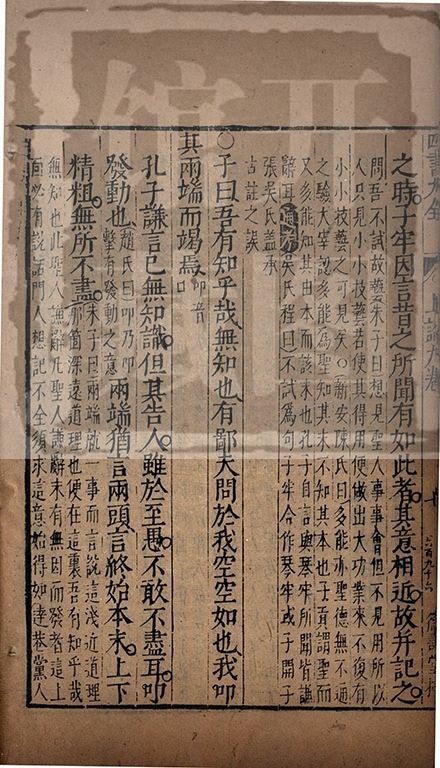 四書大全
之時子牢因言昔之所聞有如此者其意相近故并記之
問吾不試故藝朱子曰想見聖人事事會但不見用所以
人只見小小技藝若使其得用便做出大功業來不復有
小小技藝之可見矣○新安陳氏曰多能亦聖德無不通
之驗大宰認多能為聖知其末不知其本也子貢謂聖而
又多能知其由本而該末也孔子自言與琴牢所聞皆謙
辭耳通考吳氏程曰不試為句子牢合作琴牢或子開子
張吳氏蓋承
古註之誤
○子曰吾有知乎哉無知也有鄙夫問於我空空如也我叩
其兩端而竭焉叩音口
孔子謙言己無知識但其告人雖於至愚不敢不盡耳叩
發動也趙氏曰叩乃叩擊有發動之意兩端猶言兩頭言終始本末上下
精粗無所不盡朱子曰兩端就一事而言說這淺近道理那箇深遠道理也便在這裏吾有知乎哉
無知也此聖人謙辭凡聖人謙辭未有無因而發者這上
面必有說話門人想記不全須求這意始得如達巷黨人